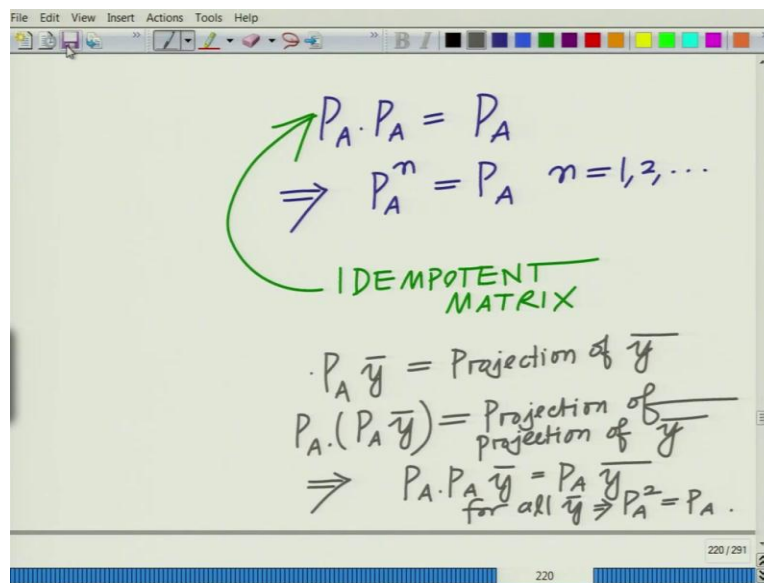 File Edit View Insert Actions Tools Help
B I
P_A . P_A = P_A
⇒ P_A^n = P_A n = 1, 2, ...
IDEMPOTENT
MATRIX
. P_A ȳ = Projection of ȳ
P_A . (P_A ȳ) = Projection of
projection of ȳ
⇒ P_A . P_A ȳ = P_A ȳ
for all ȳ ⇒ P_A^2 = P_A .
220 / 291
220